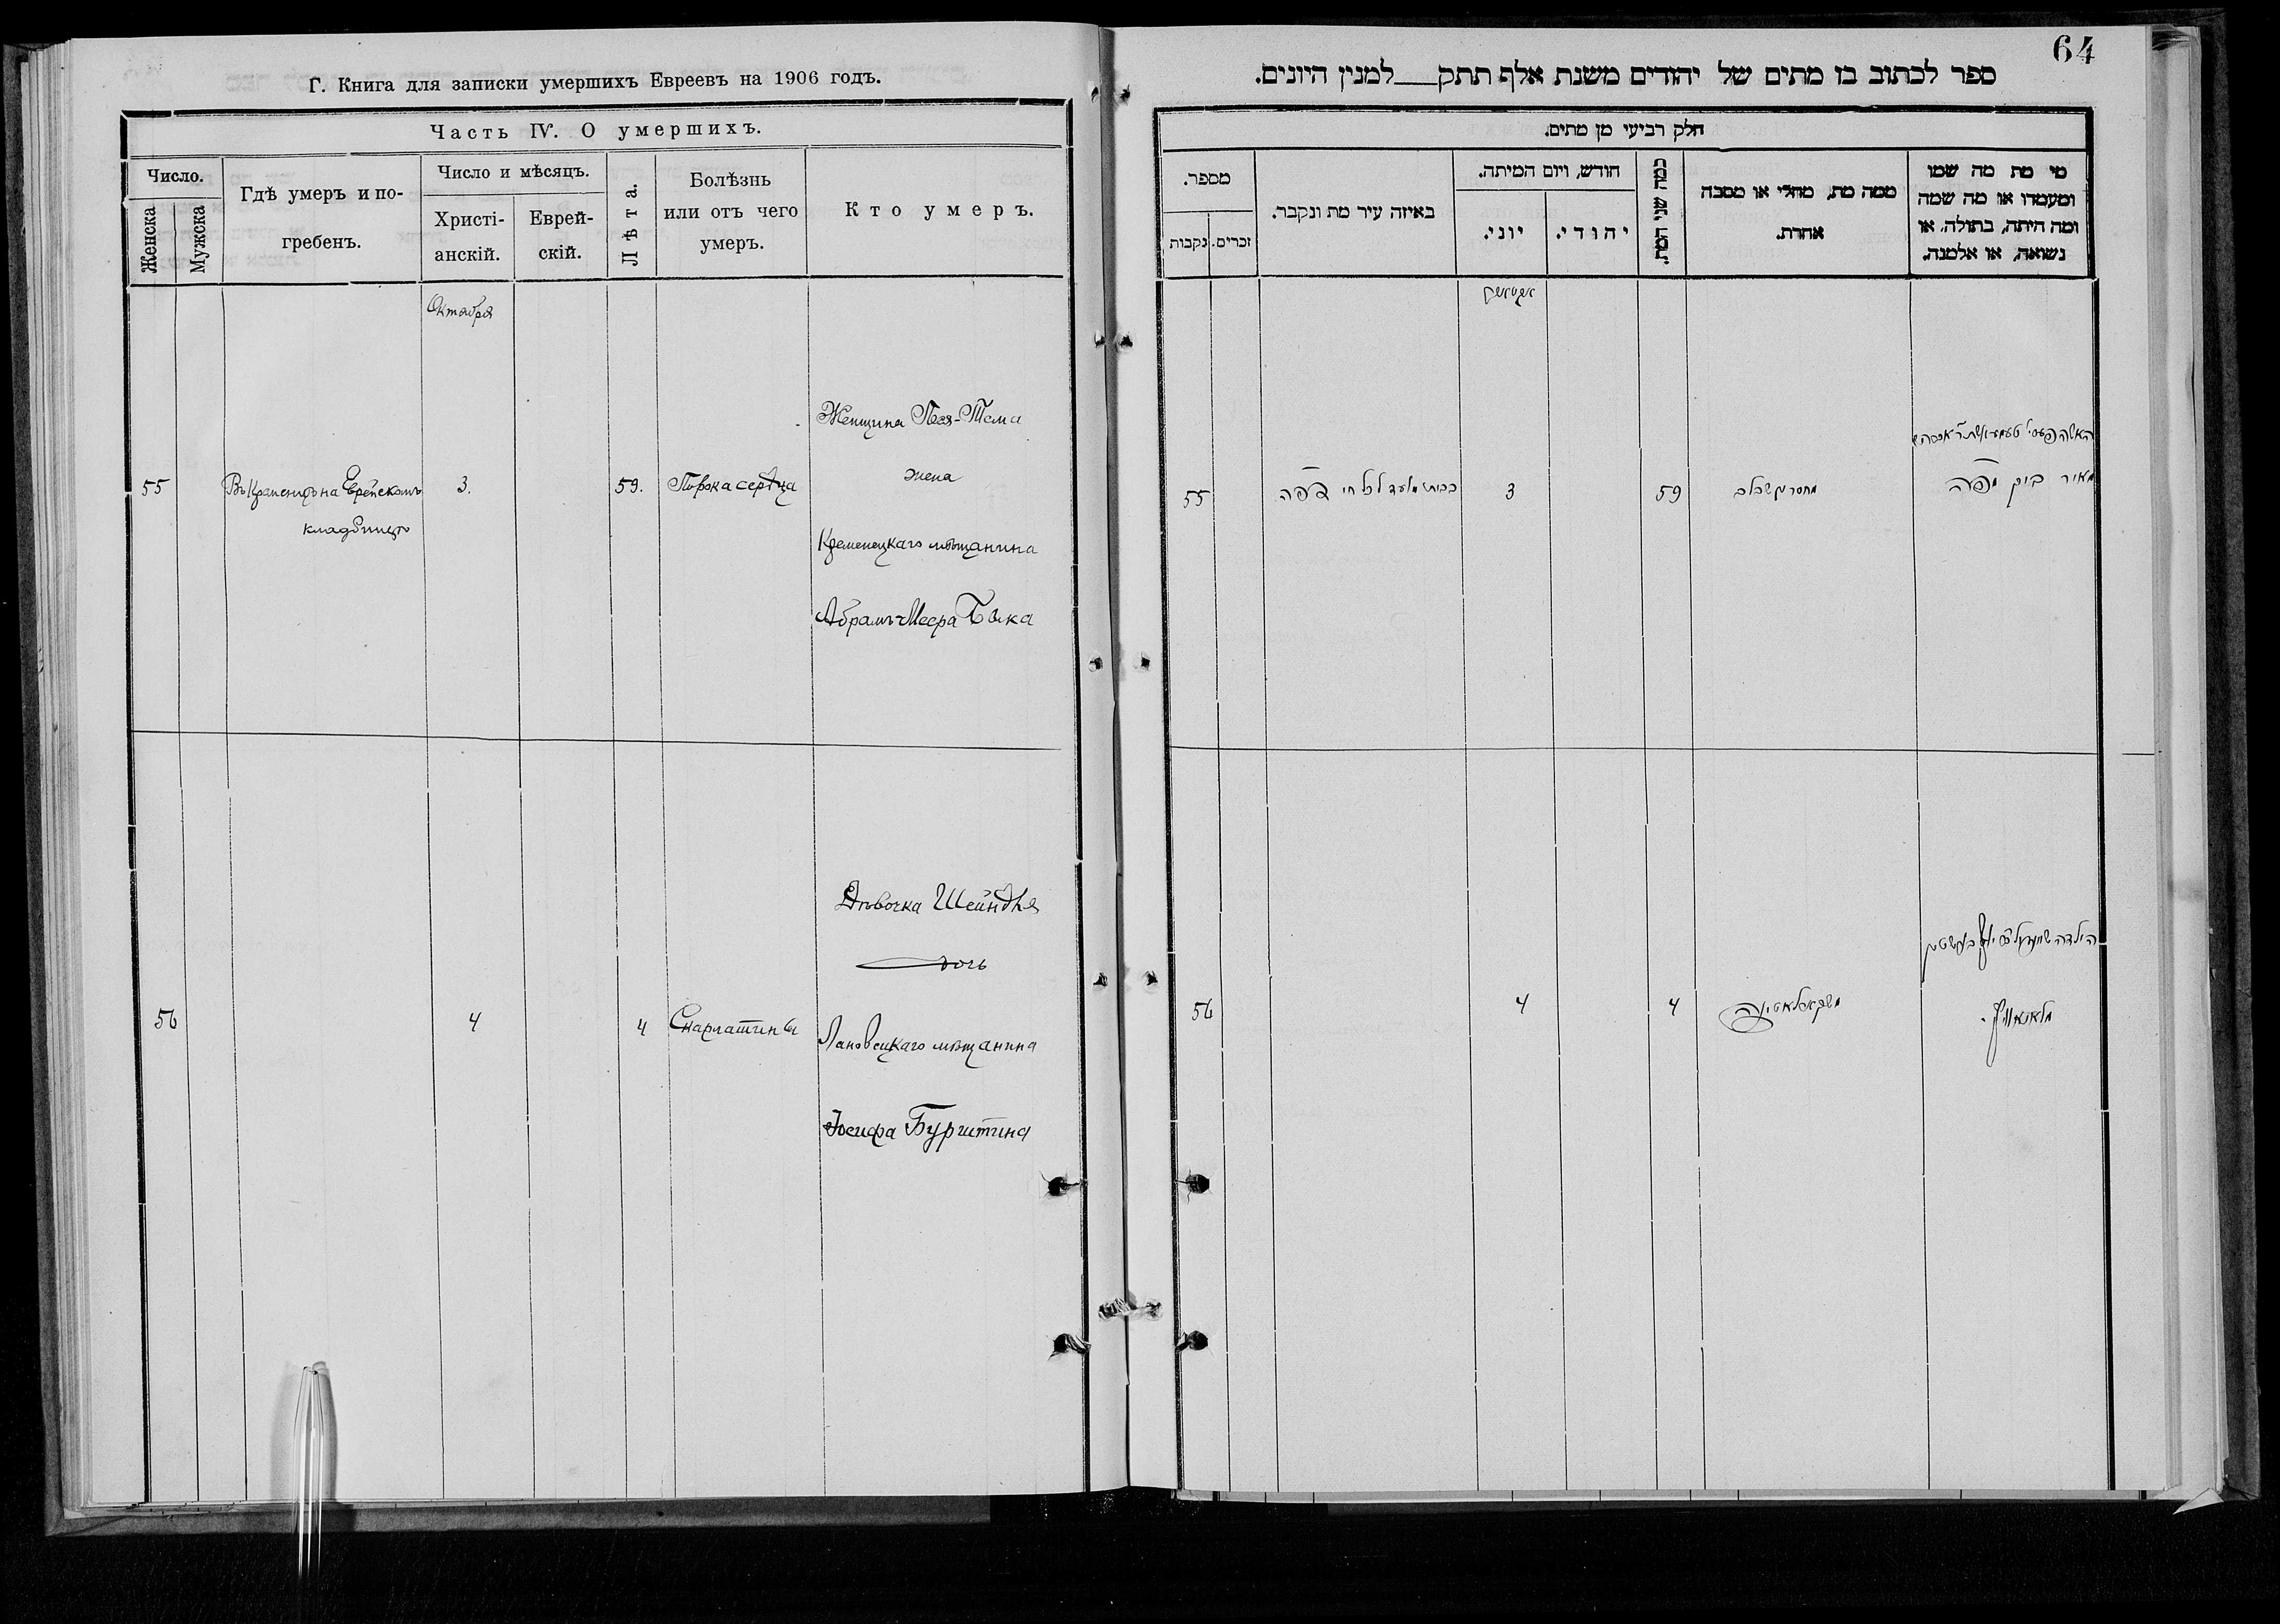 Г. Книга для записки умершихъ Евреевъ на 1906 годъ.
Часть IV. О умершихъ.
Число.
Женска
Мужска
Гдѣ умеръ и по-
гребенъ.
Число и мѣсяцъ.
Христі-
анскій.
Еврей-
скій.
Лѣта.
Болѣзнь
или отъ чего
умеръ.
Кто умеръ.
Октября
55
Въ Кременцѣ на Еврейскомъ
кладбищѣ
3.
59.
Порока сердца
Женщина Песя-Тема
жена
Кременецкаго мѣщанина
Абрамъ-Меера Бика
56
4
4
Скарлатины
Дѣвочка Шейндля
дочь
Лановецкаго мѣщанина
Іосифа Бурштина
64
ספר לכתוב בו מתים של יהודים משנת אלף תתק למנין היונים.
חלק רביעי מן מתים.
מי מת מה שמו
ומעמדו או מה שמה
ומה היתה, בתולה, או
נשואה, או אלמנה.
ממה מת, מחלי או מסבה
אחרת.
כמה שני המת.
חודש, ויום המיתה.
יהודי.
יוני.
באיזה עיר מת ונקבר.
מספר.
זכרים.
נקבות
האשה
מאיר ביק מפה
59
3
55
הילדה
4
4
56